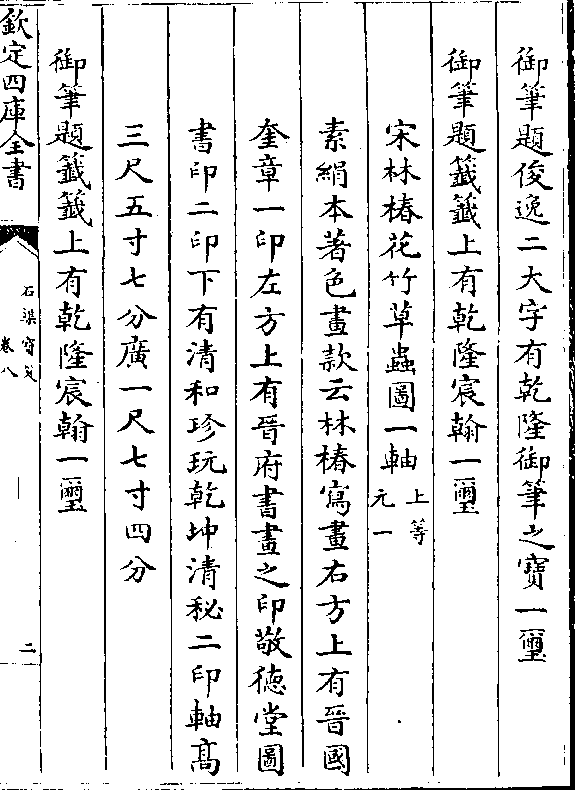 御筆題俊逸二大字有乾隆御筆之寶一璽
御筆題籤籤上有乾隆宸翰一璽
宋林椿花竹草蟲圖一軸上等元一
素絹本著色畫款云林椿寫畫右方上有晉國
奎章一印左方上有晉府書畫之印敬德堂圖
書印二印下有清和珍玩乾坤清秘二印軸髙
三尺五寸七分廣一尺七寸四分
御筆題籤籤上有乾隆宸翰一璽
欽定四庫全書
石渠寶笈
卷八
二